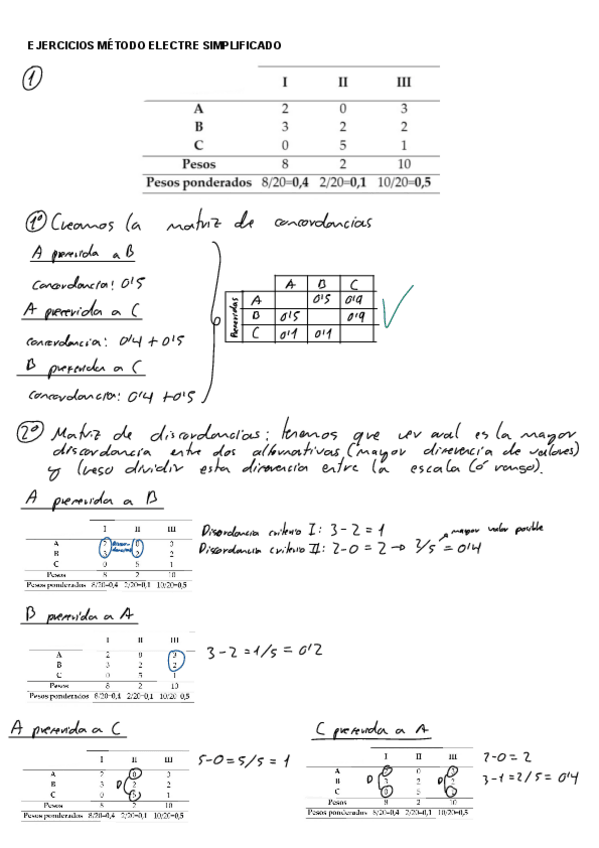 EJERCICIOS MÉTODO ELECTRE SIMPLIFICADO
1
I II III
A 2 0 3
B 3 2 2
C 0 5 1
Pesos 8 2 10
Pesos ponderados 8/20=0,4 2/20=0,1 10/20=0,5
1º Creamos la matriz de concordancias
A preferida a B
concordancia: 0'5
A preferida a C
concordancia: 0'4 + 0'5
B preferida a C
concordancia: 0'4 + 0'5
A B C
Preferidas
A 0'5 0'9
B 0'5 0'9
C 0'1 0'1
2º Matriz de discordancias: tenemos que ver cual es la mayor
discordancia entre dos alternativas (mayor diferencia de valores)
y luego dividir esta diferencia entre la escala (ó rango).
A preferida a B
I II III
A 2 0 3
B 3 2 2
C 0 5 1
Pesos 8 2 10
Pesos ponderados 8/20=0,4 2/20=0,1 10/20=0,5
Discordancia criterio I: 3-2=1
mayor valor posible
Discordancia criterio II: 2-0=2 → 2/5 = 0'4
B preferida a A
I II III
A 2 0 3
B 3 2 2
C 0 5 1
Pesos 8 2 10
Pesos ponderados 8/20=0,4 2/20=0,1 10/20=0,5
3-2=1/5=0'2
A preferida a C
I II III
A 2 0 3
B 3 D 2 2
C 0 5 1
Pesos 8 2 10
Pesos ponderados 8/20=0,4 2/20=0,1 10/20=0,5
5-0=5/5=1
C preferida a A
I II III
A 2 0 3
B D 3 2 D 2
C 0 5 1
Pesos 8 2 10
Pesos ponderados 8/20=0,4 2/20=0,1 10/20=0,5
2-0=2
3-1=2/5=0'4